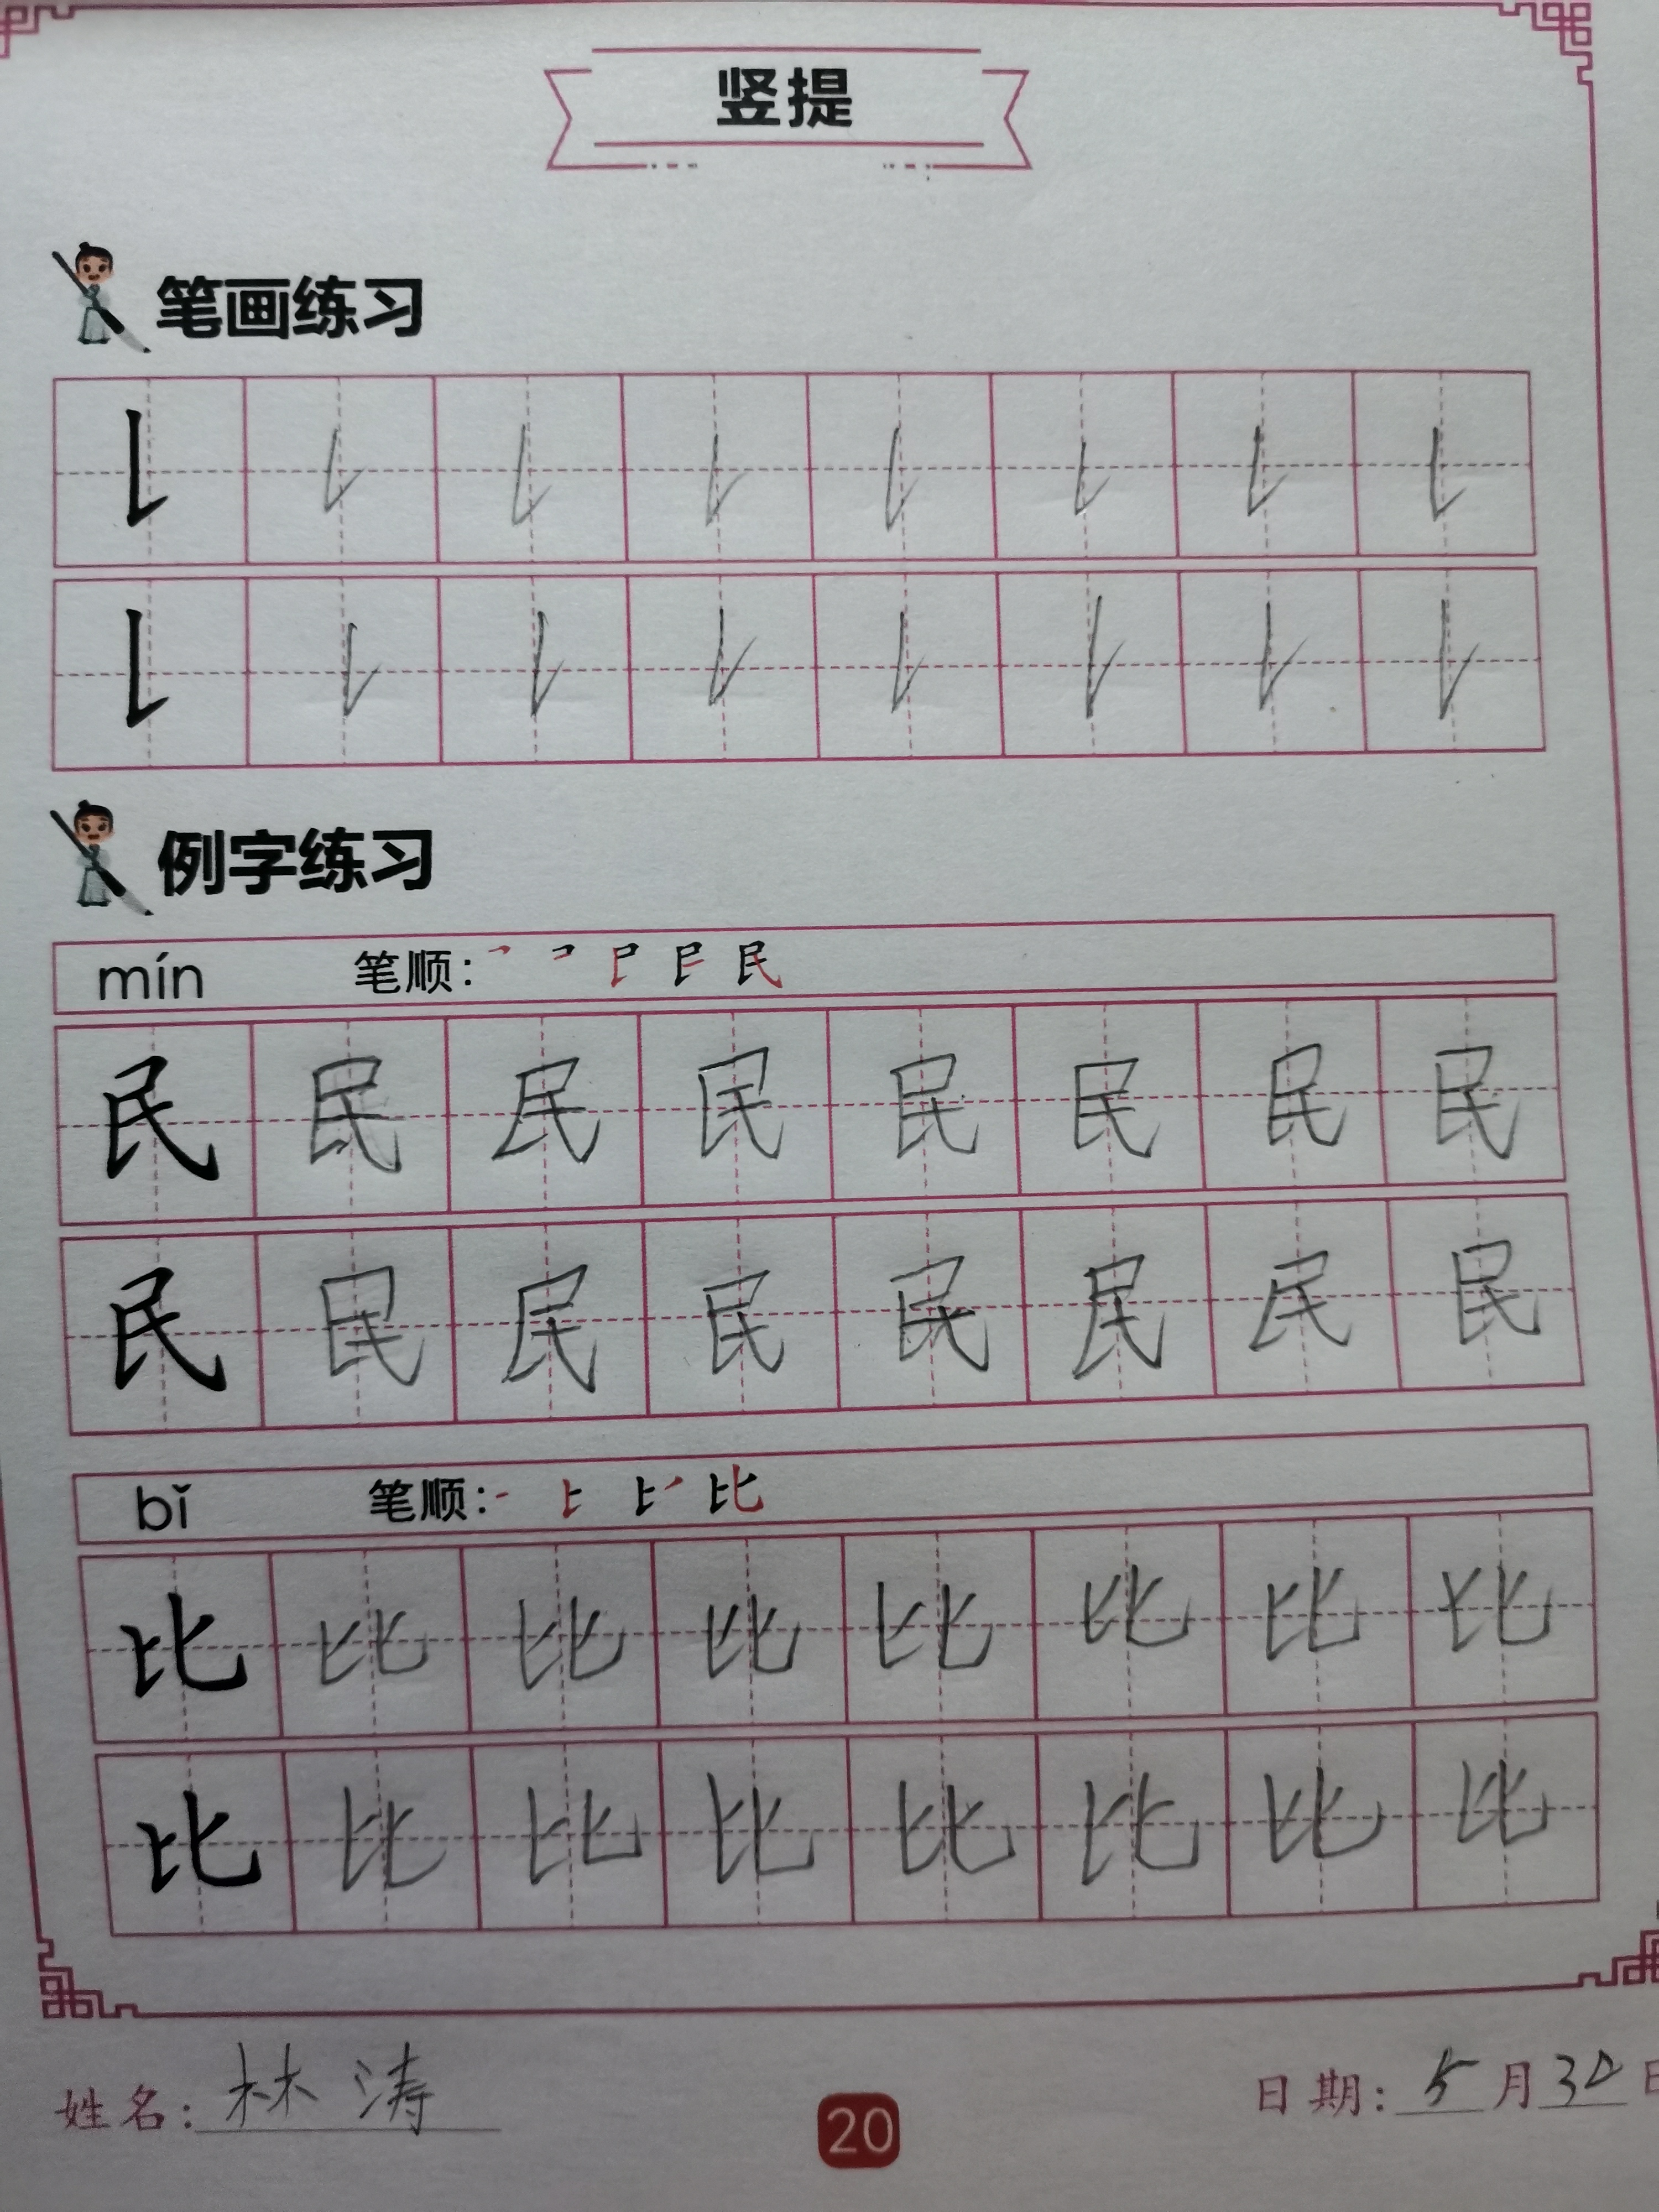 竖提
笔画练习
例字练习
mín 笔顺：
民 民 民 民 民 民 民 民
民 民 民 民 民 民 民 民
bǐ 笔顺：
比 比 比 比 比 比 比 比
比 比 比 比 比 比 比 比
姓名：林涛 20 日期：5月30日